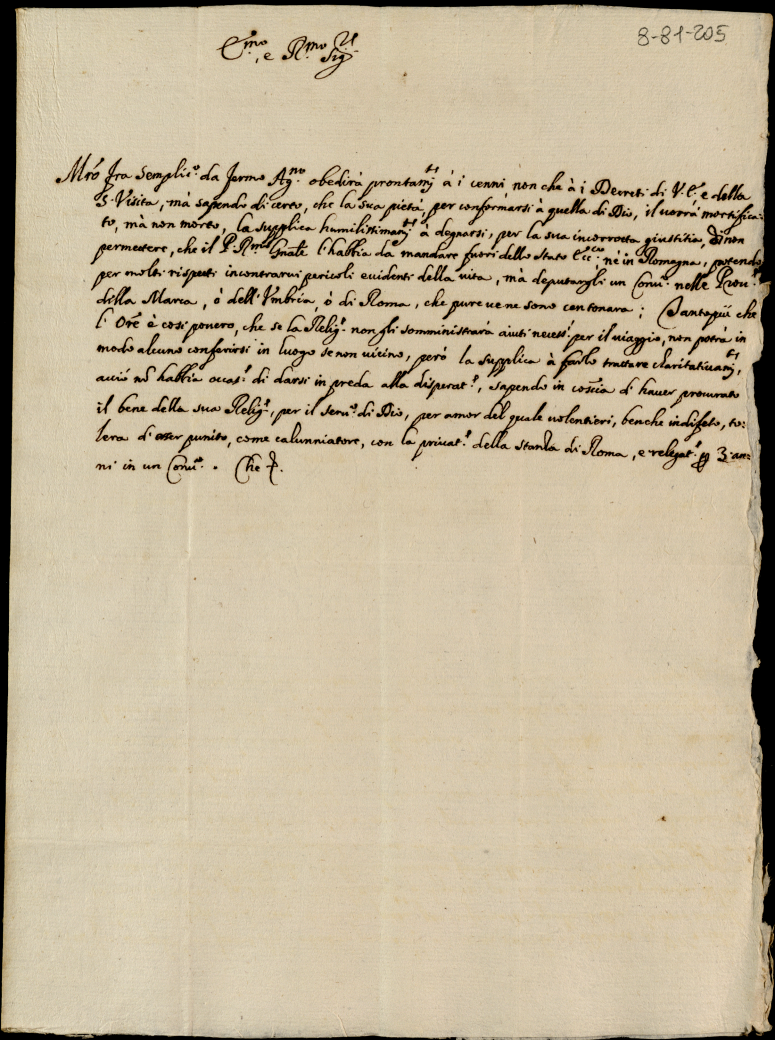 8-81-205
E.mo, e R.mo Sig.r
Mrõ Fra Semplic.o da Fermo Ag.no obedirà prontam.te à i cenni non che à i Decreti di V.E. e della
S. Visita, mà sapendo di certo, che la sua pietà, per conformarsi à quella di Dio, il vorrà mortifica-
to, mà non morto, la supplica humilissimam.te à degnarsi, per la sua incorrotta giustitia, di non
permettere, che il P. R.mo Gnãle l'habbia da mandare fuori dello Stato Ecc.co nè in Romagna, potendo
per molti rispetti incontrarvi pericoli evidenti della vita, mà deputargli un Conv.o nelle Prov.e
della Marca, ò dell'Umbria, ò di Roma, che pure ve ne sono centonara; Tantopiù che
l'Orẽ è così povero, che se la Relig.e non gli somministrarà aiuti necess.i per il viaggio, non potrà in
modo alcuno conferirsi in luogo se non vicino, però la supplica à farlo trattare charitativam.te,
acciò nõ habbia occas.e di darsi in preda alla disperat.e, sapendo in coscĩa di haver procurato
il bene della sua Relig.e, per il serv.o di Dio, per amor del quale volentieri, benche indifeso, to-
lera d'esser punito, come calunniatore, con la privat.e della stanza di Roma, e relegat.e per 3 an-
ni in un Conv.o. Che